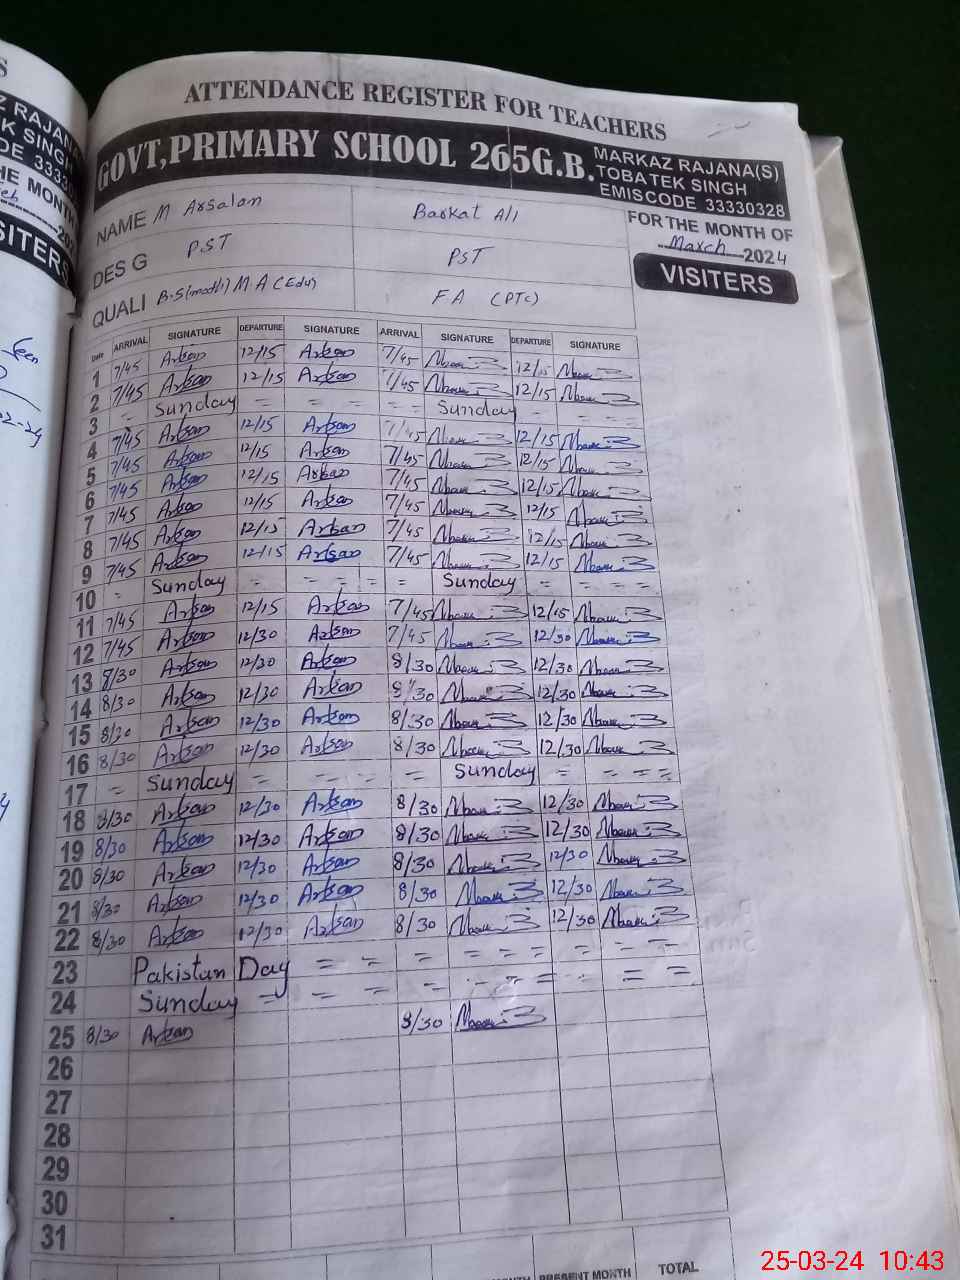 ATTENDANCE REGISTER FOR TEACHERS
GOVT,PRIMARY SCHOOL 265G.B.
MARKAZ RAJANA(S)
TOBA TEK SINGH
EMISCODE 33330328
NAME M Arsalan Barkat Ali
FOR THE MONTH OF
March 2024
DES G PST PST
VISITERS
QUALI B.S(math) M A (Edu) F A (PTC)
Date ARRIVAL SIGNATURE DEPARTURE SIGNATURE ARRIVAL SIGNATURE DEPARTURE SIGNATURE
1 7/45 Arslan 12/15 Arslan 7/45 12/15
2 7/45 Arslan 12/15 Arslan 7/45 12/15
3 = Sunday = = = = = Sunday = = = =
4 7/45 Arslan 12/15 Arslan 7/45 12/15
5 7/45 Arslan 12/15 Arslan 7/45 12/15
6 7/45 Arslan 12/15 Arslan 7/45 12/15
7 7/45 Arslan 12/15 Arslan 7/45 12/15
8 7/45 Arslan 12/15 Arslan 7/45 12/15
9 7/45 Arslan 12/15 Arslan 7/45 12/15
10 = Sunday = = = = = Sunday = = = =
11 7/45 Arslan 12/15 Arslan 7/45 12/15
12 7/45 Arslan 12/30 Arslan 7/45 12/30
13 8/30 Arslan 12/30 Arslan 8/30 12/30
14 8/30 Arslan 12/30 Arslan 8/30 12/30
15 8/30 Arslan 12/30 Arslan 8/30 12/30
16 8/30 Arslan 12/30 Arslan 8/30 12/30
17 = Sunday = = = = = Sunday = = = =
18 8/30 Arslan 12/30 Arslan 8/30 12/30
19 8/30 Arslan 12/30 Arslan 8/30 12/30
20 8/30 Arslan 12/30 Arslan 8/30 12/30
21 8/30 Arslan 12/30 Arslan 8/30 12/30
22 8/30 Arslan 12/30 Arslan 8/30 12/30
23 Pakistan Day = = = = = = = = =
24 Sunday = = = = = = = = = =
25 8/30 Arslan 8/30
26
27
28
29
30
31
PRESENT MONTH TOTAL
25-03-24 10:43